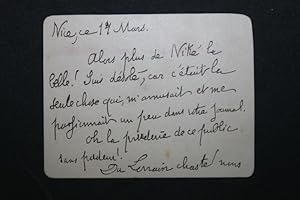 Nice, ce 17 Mars.
Alors plus de Nitké la
belle! Suis désolé, car c'était la
seule chose qui m'amusait et me
passionnait un peu dans votre journal.
Oh la pruderie de ce public
sans pudeur!
Du Lorrain chasté nous